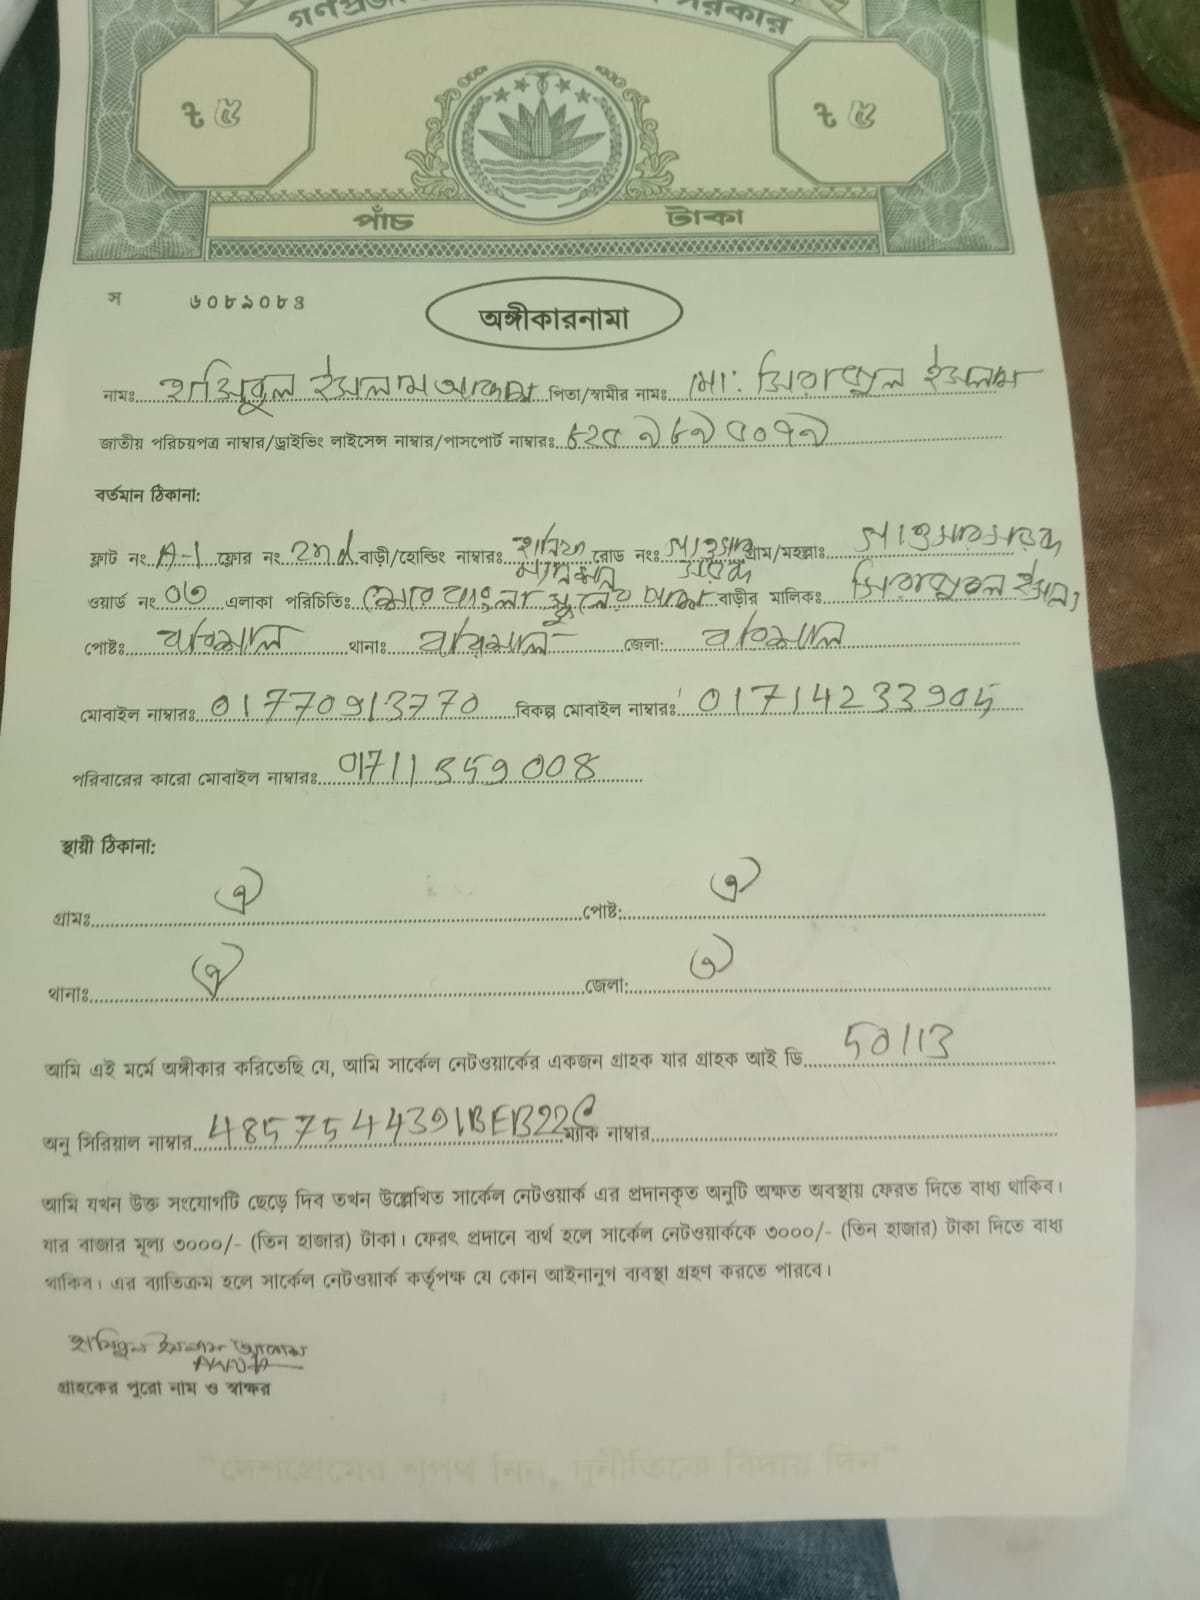 ৳ ৫ ৳ ৫
পাঁচ টাকা
স ৬০৮৯০৮৪
অঙ্গীকারনামা
নামঃ হাসিবুল ইসলাম আকাশ পিতা/স্বামীর নামঃ মো: সিরাজুল ইসলাম
জাতীয় পরিচয়পত্র নাম্বার/ড্রাইভিং লাইসেন্স নাম্বার/পাসপোর্ট নাম্বারঃ
বর্তমান ঠিকানা:
ফ্লাট নং A-1 ফ্লোর নং 2nd বাড়ী/হোল্ডিং নাম্বারঃ রোড নংঃ গ্রাম/মহল্লাঃ
ওয়ার্ড নং 03 এলাকা পরিচিতিঃ শেরে বাংলা স্কুলের পাশে বাড়ীর মালিকঃ সিরাজুল ইসলাম
পোষ্টঃ বরিশাল থানাঃ বরিশাল জেলা: বরিশাল
মোবাইল নাম্বারঃ 01770913770 বিকল্প মোবাইল নাম্বারঃ 01714233905
পরিবারের কারো মোবাইল নাম্বারঃ 01711359008
স্থায়ী ঠিকানা:
গ্রামঃ ঐ পোষ্ট: ঐ
থানাঃ ঐ জেলা: ঐ
আমি এই মর্মে অঙ্গীকার করিতেছি যে, আমি সার্কেল নেটওয়ার্কের একজন গ্রাহক যার গ্রাহক আই ডি 50113
অনু সিরিয়াল নাম্বার 4857544391BEB22C ম্যাক নাম্বার
আমি যখন উক্ত সংযোগটি ছেড়ে দিব তখন উল্লেখিত সার্কেল নেটওয়ার্ক এর প্রদানকৃত অনুটি অক্ষত অবস্থায় ফেরত দিতে বাধ্য থাকিব।
যার বাজার মূল্য ৩০০০/- (তিন হাজার) টাকা। ফেরৎ প্রদানে ব্যর্থ হলে সার্কেল নেটওয়ার্ককে ৩০০০/- (তিন হাজার) টাকা দিতে বাধ্য
থাকিব। এর ব্যাতিক্রম হলে সার্কেল নেটওয়ার্ক কর্তৃপক্ষ যে কোন আইনানুগ ব্যবস্থা গ্রহণ করতে পারবে।
হাসিবুল ইসলাম আকাশ
গ্রাহকের পুরো নাম ও স্বাক্ষর
"দেশপ্রেমের শপথ নিন, দুর্নীতিকে বিদায় দিন"